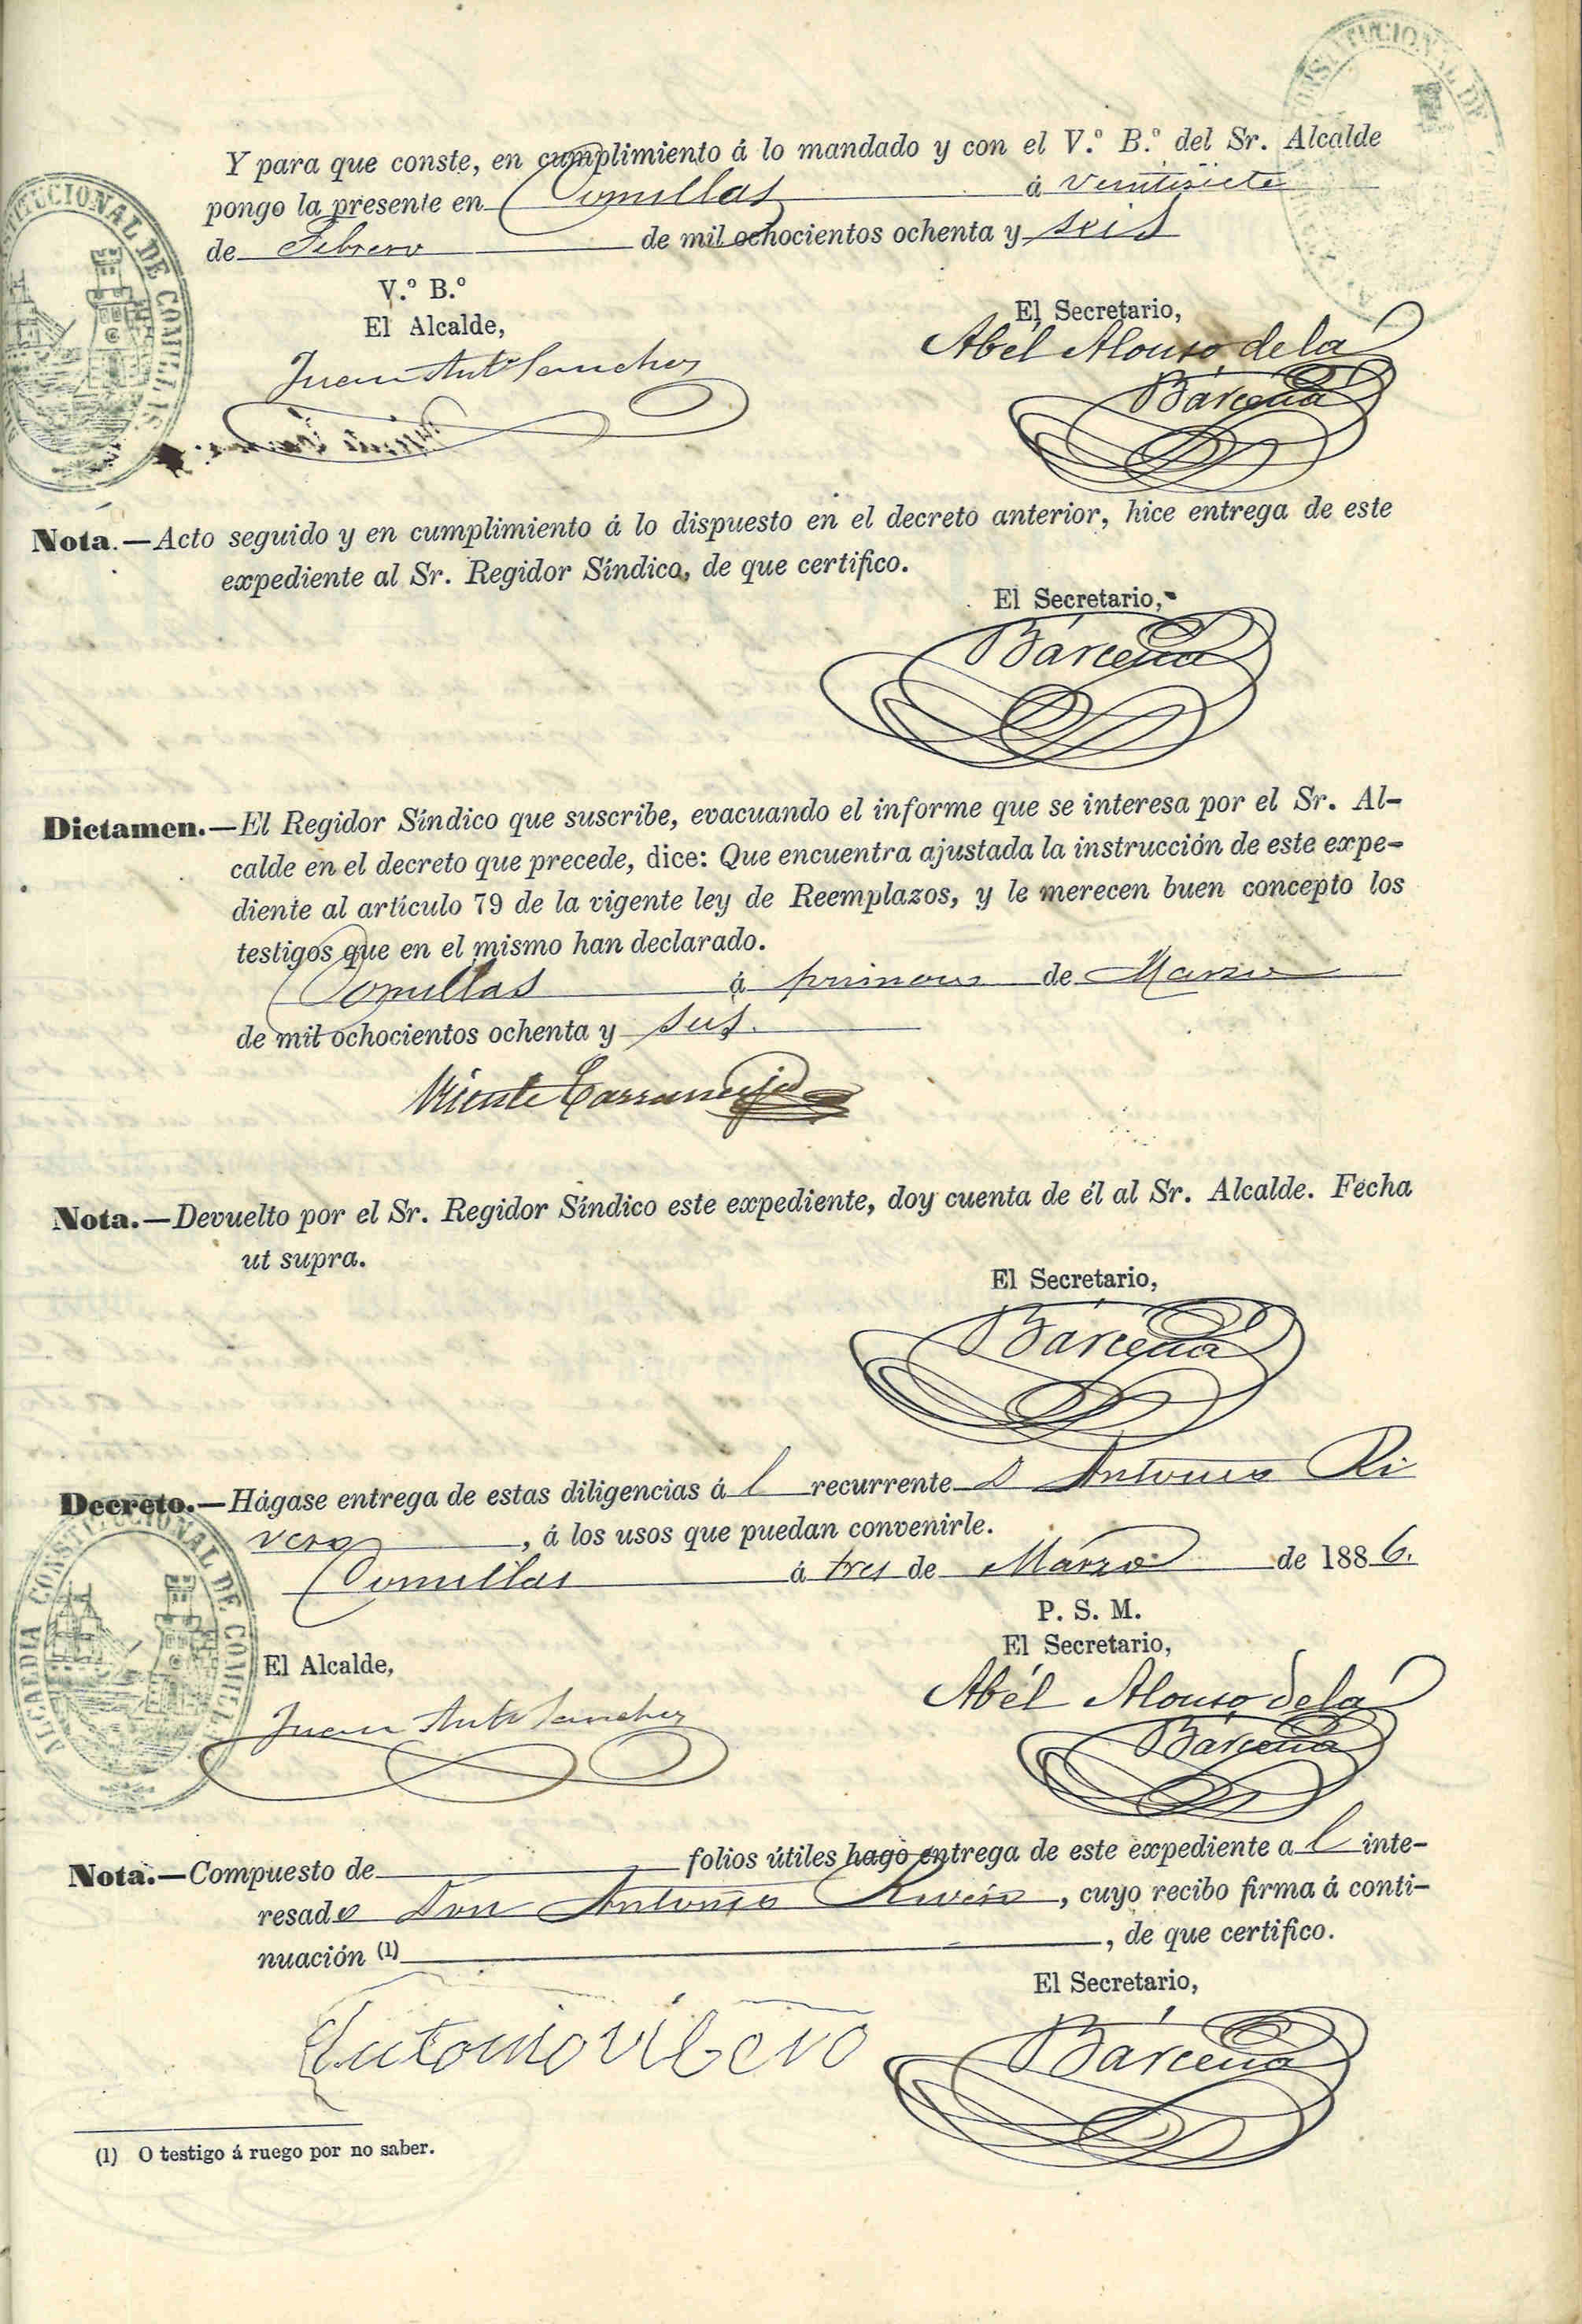 Y para que conste, en cumplimiento á lo mandado y con el V.º B.º del Sr. Alcalde
pongo la presente en Comillas á veintisiete
de Febrero de mil ochocientos ochenta y seis
V.º B.º
El Alcalde,
El Secretario,
Juan Ant.º Sanchez
Abél Alonso de la
Bárcena
ALCALDIA CONSTITUCIONAL DE COMILLAS
CONSTITUCIONAL DE
Nota.—Acto seguido y en cumplimiento á lo dispuesto en el decreto anterior, hice entrega de este
expediente al Sr. Regidor Síndico, de que certifico.
El Secretario,
Bárcena
Dictamen.—El Regidor Síndico que suscribe, evacuando el informe que se interesa por el Sr. Al-
calde en el decreto que precede, dice: Que encuentra ajustada la instrucción de este expe-
diente al artículo 79 de la vigente ley de Reemplazos, y le merecen buen concepto los
testigos que en el mismo han declarado.
Comillas á primero de Marzo
de mil ochocientos ochenta y seis.
Vicente
Nota.—Devuelto por el Sr. Regidor Síndico este expediente, doy cuenta de él al Sr. Alcalde. Fecha
ut supra.
El Secretario,
Bárcena
Decreto.—Hágase entrega de estas diligencias á l recurrente D Antonio Ri
vero, á los usos que puedan convenirle.
Comillas á tres de Marzo de 1886.
P. S. M.
El Secretario,
El Alcalde,
Abél Alonso de la
Juan Ant.º Sanchez
Bárcena
ALCALDIA CONSTITUCIONAL DE COMILLAS
Nota.—Compuesto de folios útiles hago entrega de este expediente a l inte-
resado Don Antonio Rivero, cuyo recibo firma á conti-
nuación (1), de que certifico.
El Secretario,
Antonio ribero
Bárcena
(1) O testigo á ruego por no saber.